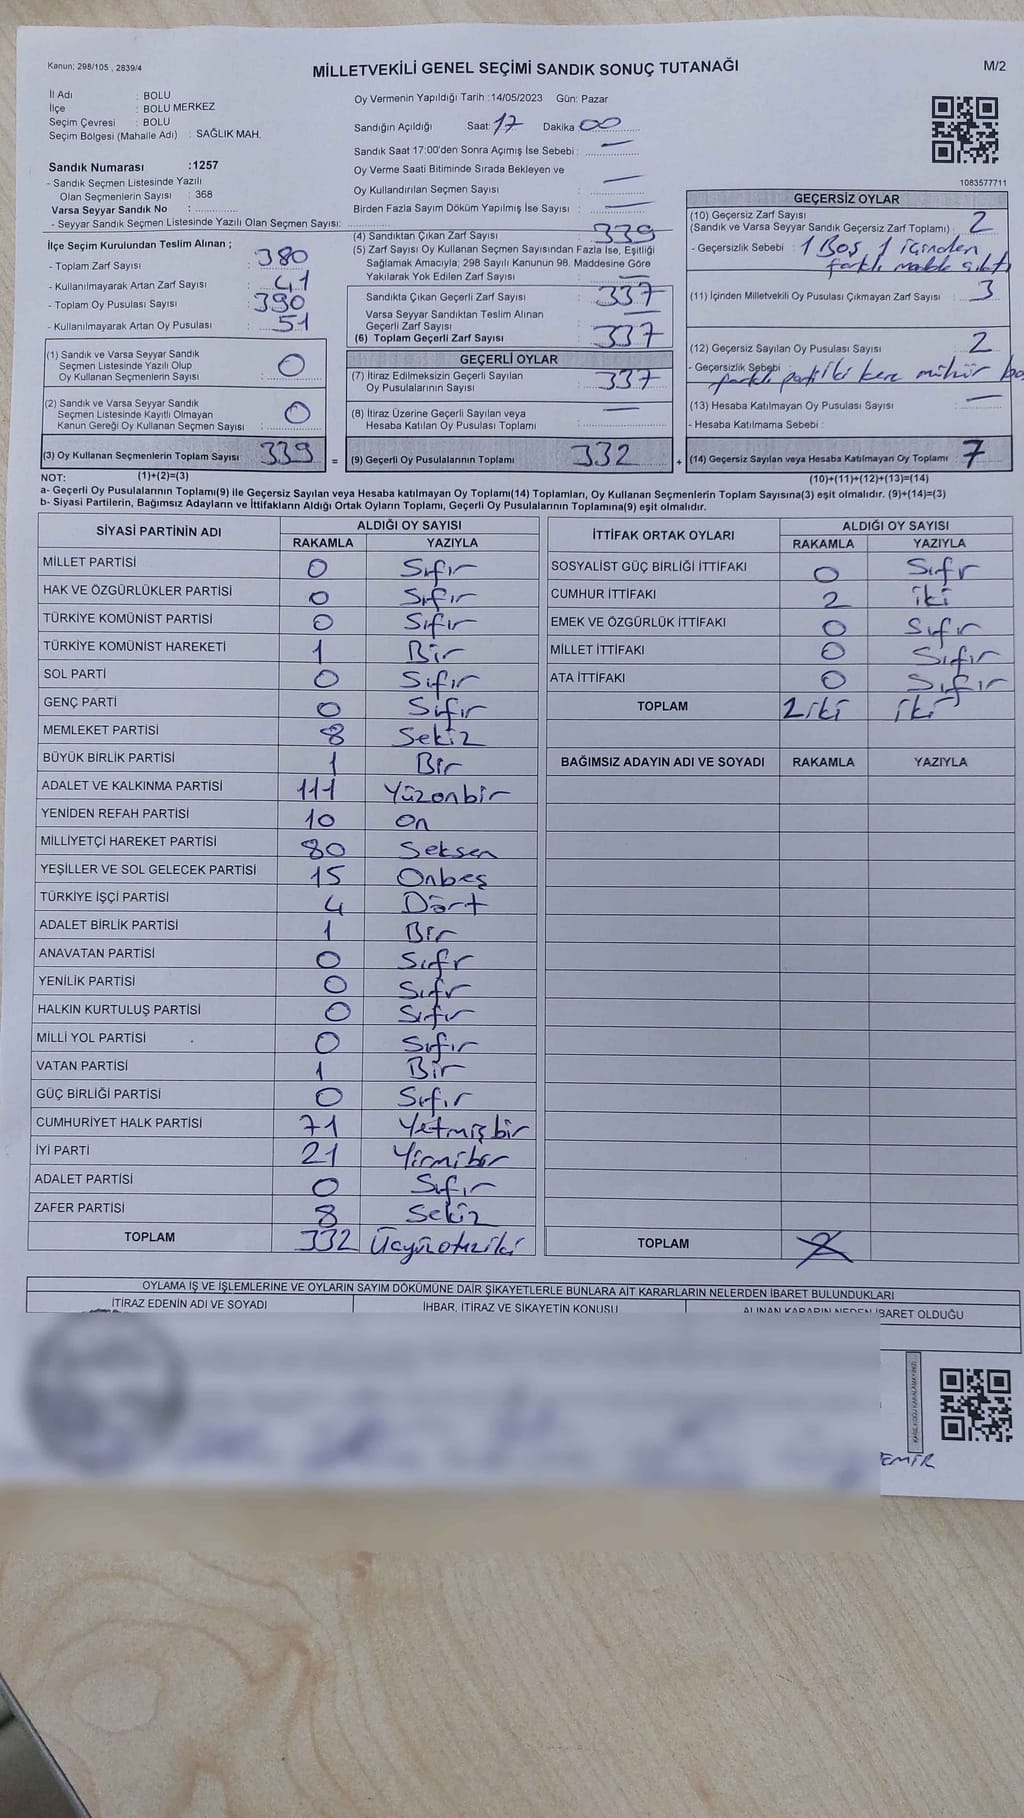 Kanun; 298/105 , 2839/4
MİLLETVEKİLİ GENEL SEÇİMİ SANDIK SONUÇ TUTANAĞI
M/2
İl Adı : BOLU
İlçe : BOLU MERKEZ
Seçim Çevresi : BOLU
Seçim Bölgesi (Mahalle Adı) : SAĞLIK MAH.
Sandık Numarası :1257
- Sandık Seçmen Listesinde Yazılı
Olan Seçmenlerin Sayısı : 368
Varsa Seyyar Sandık No : ............
- Seyyar Sandık Seçmen Listesinde Yazılı Olan Seçmen Sayısı: ............
İlçe Seçim Kurulundan Teslim Alınan ;
- Toplam Zarf Sayısı : 380
- Kullanılmayarak Artan Zarf Sayısı : 41
- Toplam Oy Pusulası Sayısı : 390
- Kullanılmayarak Artan Oy Pusulası : 51
(1) Sandık ve Varsa Seyyar Sandık
Seçmen Listesinde Yazılı Olup
Oy Kullanan Seçmenlerin Sayısı : 0
(2) Sandık ve Varsa Seyyar Sandık
Seçmen Listesinde Kayıtlı Olmayan
Kanun Gereği Oy Kullanan Seçmen Sayısı : 0
(3) Oy Kullanan Seçmenlerin Toplam Sayısı 339
Oy Vermenin Yapıldığı Tarih :14/05/2023 Gün: Pazar
Sandığın Açıldığı Saat: 17 Dakika 00
Sandık Saat 17:00'den Sonra Açımış İse Sebebi : —
Oy Verme Saati Bitiminde Sırada Bekleyen ve
Oy Kullandırılan Seçmen Sayısı : —
Birden Fazla Sayım Döküm Yapılmış İse Sayısı : —
(4) Sandıktan Çıkan Zarf Sayısı : 339
(5) Zarf Sayısı Oy Kullanan Seçmen Sayısından Fazla İse, Eşitliği
Sağlamak Amacıyla; 298 Sayılı Kanunun 98. Maddesine Göre
Yakılarak Yok Edilen Zarf Sayısı : —
Sandıkta Çıkan Geçerli Zarf Sayısı : 337
Varsa Seyyar Sandıktan Teslim Alınan
Geçerli Zarf Sayısı : —
(6) Toplam Geçerli Zarf Sayısı : 337
GEÇERLİ OYLAR
(7) İtiraz Edilmeksizin Geçerli Sayılan
Oy Pusulalarının Sayısı : 337
(8) İtiraz Üzerine Geçerli Sayılan veya
Hesaba Katılan Oy Pusulası Toplamı : —
= (9) Geçerli Oy Pusulalarının Toplamı 332
1083577711
GEÇERSİZ OYLAR
(10) Geçersiz Zarf Sayısı
(Sandık ve Varsa Seyyar Sandık Geçersiz Zarf Toplamı) : 2
- Geçersizlik Sebebi : 1 Boş 1 içinden
farklı madde
(11) İçinden Milletvekili Oy Pusulası Çıkmayan Zarf Sayısı : 3
(12) Geçersiz Sayılan Oy Pusulası Sayısı : 2
- Geçersizlik Sebebi
farklı parti iki kere mühür
(13) Hesaba Katılmayan Oy Pusulası Sayısı : —
- Hesaba Katılmama Sebebi :
+ (14) Geçersiz Sayılan veya Hesaba Katılmayan Oy Toplamı 7
NOT: (1)+(2)=(3) (10)+(11)+(12)+(13)=(14)
a- Geçerli Oy Pusulalarının Toplamı(9) ile Geçersiz Sayılan veya Hesaba katılmayan Oy Toplamı(14) Toplamları, Oy Kullanan Seçmenlerin Toplam Sayısına(3) eşit olmalıdır. (9)+(14)=(3)
b- Siyasi Partilerin, Bağımsız Adayların ve İttifakların Aldığı Ortak Oyların Toplamı, Geçerli Oy Pusulalarının Toplamına(9) eşit olmalıdır.
SİYASİ PARTİNİN ADI ALDIĞI OY SAYISI
RAKAMLA YAZIYLA
MİLLET PARTİSİ 0 Sıfır
HAK VE ÖZGÜRLÜKLER PARTİSİ 0 Sıfır
TÜRKİYE KOMÜNİST PARTİSİ 0 Sıfır
TÜRKİYE KOMÜNİST HAREKETİ 1 Bir
SOL PARTİ 0 Sıfır
GENÇ PARTİ 0 Sıfır
MEMLEKET PARTİSİ 8 Sekiz
BÜYÜK BİRLİK PARTİSİ 1 Bir
ADALET VE KALKINMA PARTİSİ 111 Yüzonbir
YENİDEN REFAH PARTİSİ 10 On
MİLLİYETÇİ HAREKET PARTİSİ 80 Seksen
YEŞİLLER VE SOL GELECEK PARTİSİ 15 Onbeş
TÜRKİYE İŞÇİ PARTİSİ 4 Dört
ADALET BİRLİK PARTİSİ 1 Bir
ANAVATAN PARTİSİ 0 Sıfır
YENİLİK PARTİSİ 0 Sıfır
HALKIN KURTULUŞ PARTİSİ 0 Sıfır
MİLLİ YOL PARTİSİ 0 Sıfır
VATAN PARTİSİ 1 Bir
GÜÇ BİRLİĞİ PARTİSİ 0 Sıfır
CUMHURİYET HALK PARTİSİ 71 Yetmişbir
İYİ PARTİ 21 Yirmibir
ADALET PARTİSİ 0 Sıfır
ZAFER PARTİSİ 8 Sekiz
TOPLAM 332 Üçyüzotuziki
İTTİFAK ORTAK OYLARI ALDIĞI OY SAYISI
RAKAMLA YAZIYLA
SOSYALİST GÜÇ BİRLİĞİ İTTİFAKI 0 Sıfır
CUMHUR İTTİFAKI 2 iki
EMEK VE ÖZGÜRLÜK İTTİFAKI 0 Sıfır
MİLLET İTTİFAKI 0 Sıfır
ATA İTTİFAKI 0 Sıfır
TOPLAM 2 iki iki
BAĞIMSIZ ADAYIN ADI VE SOYADI RAKAMLA YAZIYLA
TOPLAM
OYLAMA İŞ VE İŞLEMLERİNE VE OYLARIN SAYIM DÖKÜMÜNE DAİR ŞİKAYETLERLE BUNLARA AİT KARARLARIN NELERDEN İBARET BULUNDUKLARI
İTİRAZ EDENİN ADI VE SOYADI İHBAR, İTİRAZ VE ŞİKAYETİN KONUSU ALINAN KARARIN NEDEN İBARET OLDUĞU
EMİR